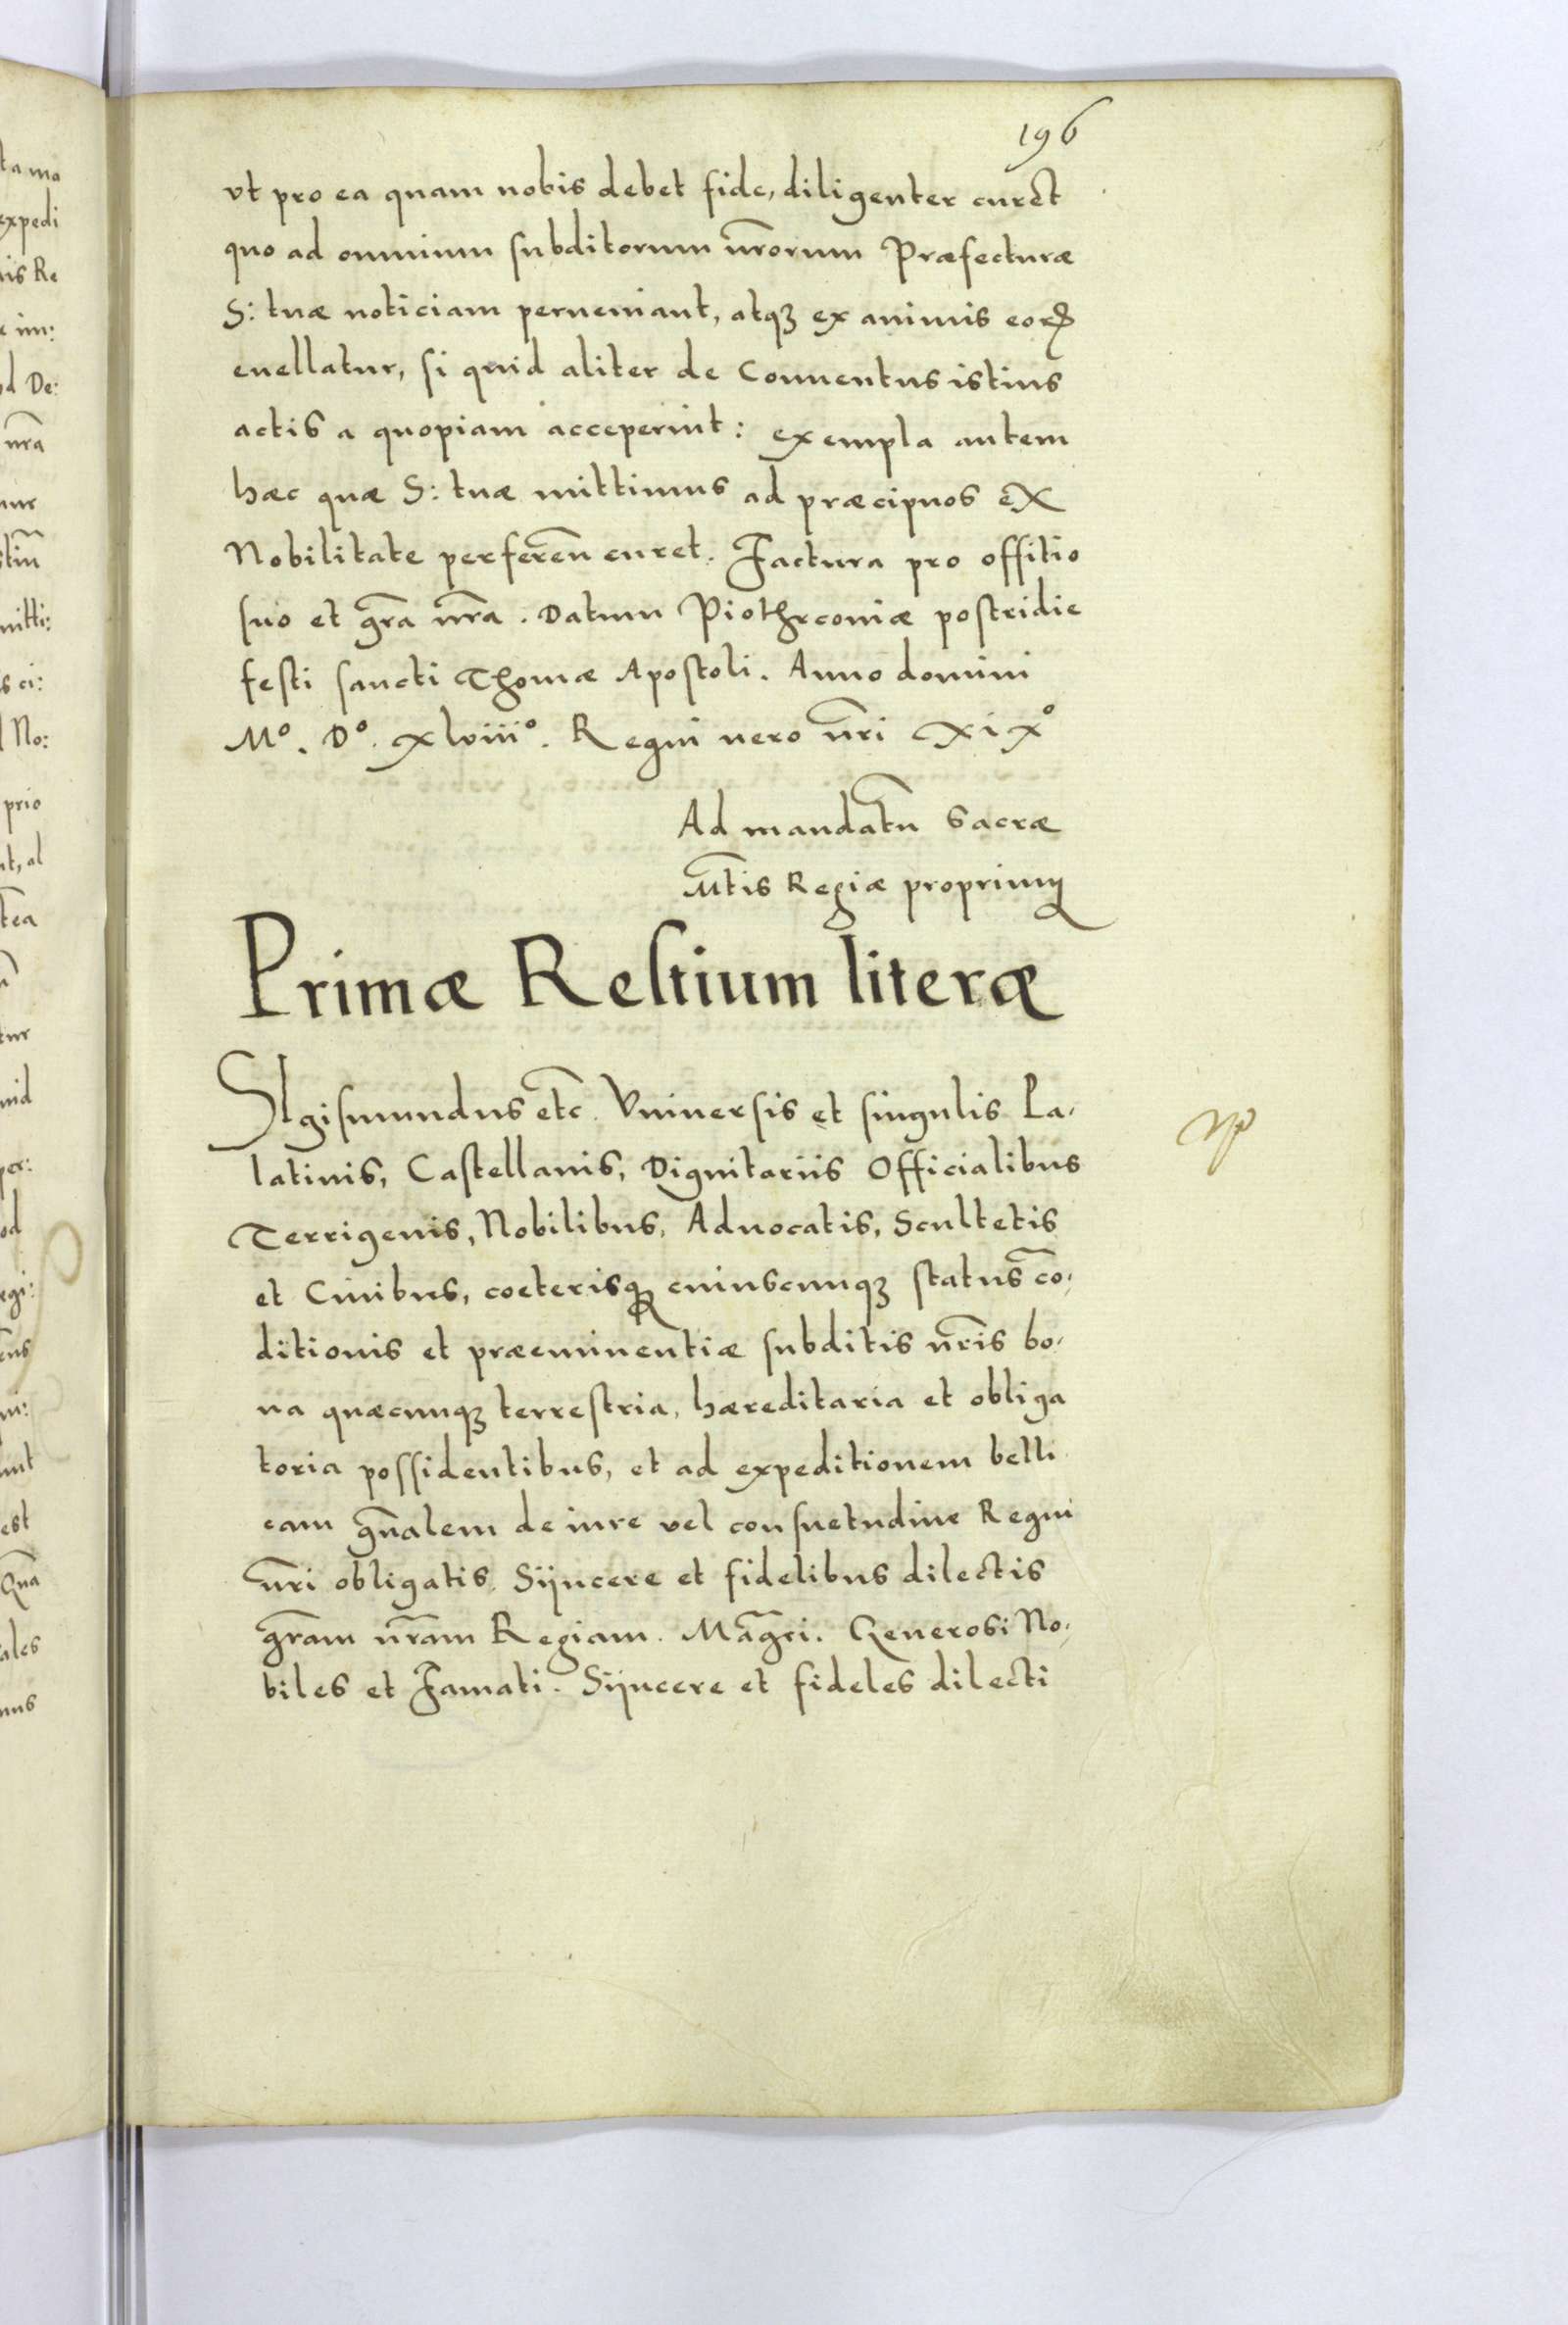 196
vt pro ea quam nobis debet fide, diligenter curet
quo ad omnium subditorum nr̃orum Præfecturæ
S: tuæ noticiam perueniant, atqꝫ ex animis eorꝝ
euellatur, si quid aliter de Conuentus istius
actis a quopiam acceperint: exempla autem
hæc quæ S: tuæ mittimus ad præcipuos ex
Nobilitate perferen̄ curet. Factura pro offitio
suo et gr̃a nr̃a. Datum Piothrconiæ postridie
festi sancti Thomæ Apostoli. Anno domini
Mº. Dº. xlviiiº. Regni uero nr̃i XiXº
Ad mandatū Sacræ
Mtis Regiæ proprium
Primæ Restium literæ
SIgismundus etc̃. Vniuersis et singulis Pa-
latinis, Castellanis, Dignitariis Officialibus
Terrigenis, Nobilibus, Aduocatis, Scultetis
et Ciuibus, cœterisqꝫ cuiuscunqꝫ status cō-
ditionis et præeminentiæ subditis nr̃is bo-
na quæcunqꝫ terrestria, hæreditaria et obliga
toria possidentibus, et ad expeditionem belli
cam gñalem de iure vel consuetudine Regni
nr̃i obligatis. Sÿncere et fidelibus dilectis
gr̃am nr̃am Regiam. Mag̃ci. Generosi No-
biles et Famati. Sÿncere et fideles dilecti